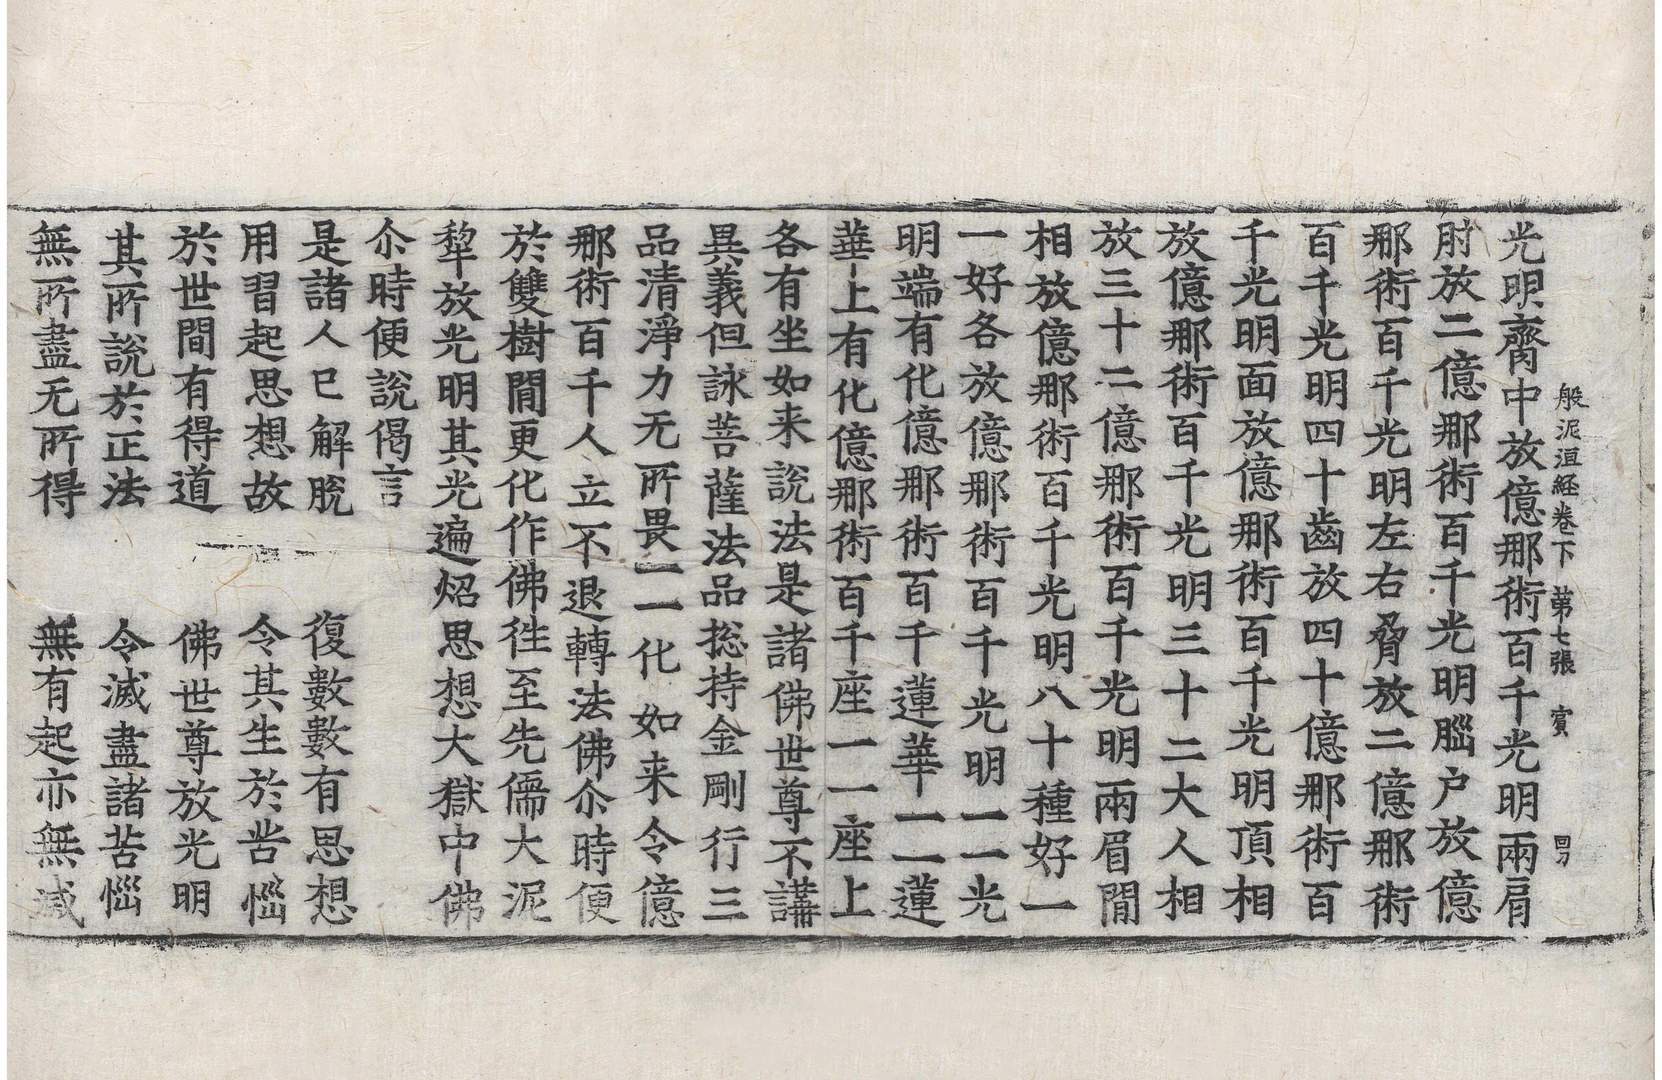 般泥洹経卷下 第七張 賓 回刀
光明齊中放億那術百千光明兩肩
肘放二億那術百千光明腦户放億
那術百千光明左右脅放二億那術
百千光明四十齒放四十億那術百
千光明面放億那術百千光明頂相
放億那術百千光明三十二大人相
放三十二億那術百千光明兩眉間
相放億那術百千光明八十種好一
一好各放億那術百千光明一一光
明端有化億那術百千蓮華一一蓮
華上有化億那術百千座一一座上
各有坐如来說法是諸佛世尊不講
異義但詠菩薩法品捴持金剛行三
品清淨力无所畏一一化如来令億
那術百千人立不退轉法佛尒時便
於雙樹間更化作佛徃至先儒大泥
犂放光明其光遍炤思想大獄中佛
尒時便說偈言
是諸人已解脫 復數數有思想
用習起思想故 令其生於苦惱
於世間有得道 佛世尊放光明
其所說於正法 令滅盡諸苦惱
無所盡无所得 無有起亦無滅